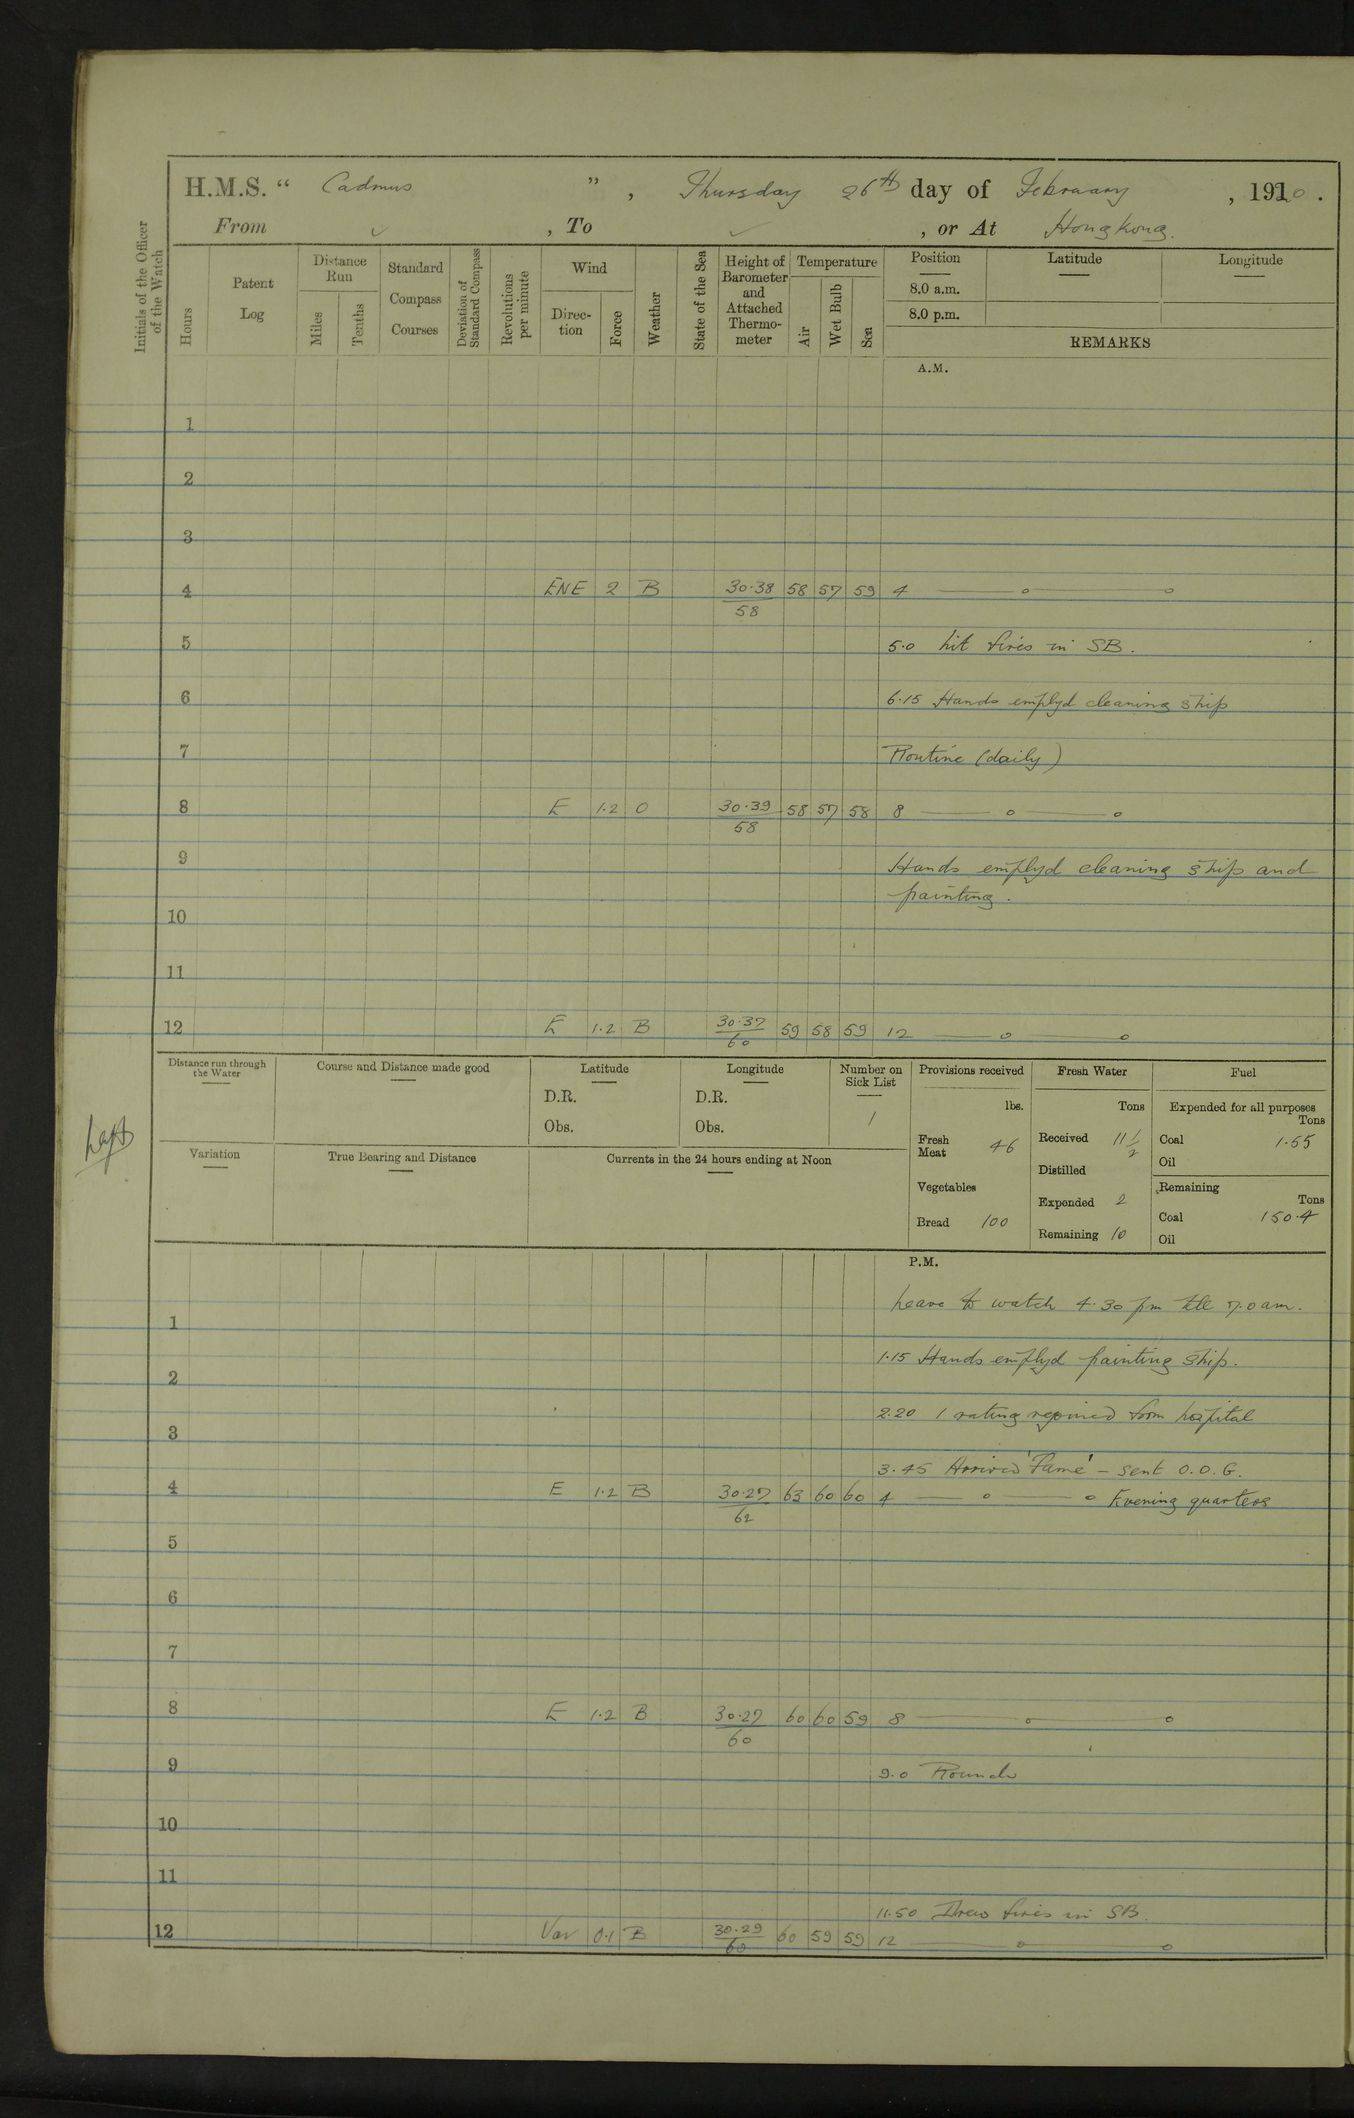 H.M.S. “ Cadmus ” , Thursday 26th day of February , 1920 .
From ✓ , To ✓ , or At Hongkong.
Initials of the Officer of the Watch
Hours
Patent Log
Distance Run
Miles
Tenths
Standard Compass Courses
Deviation of Standard Compass
Revolutions per minute
Wind
Direction
Force
Weather
State of the Sea
Height of Barometer and Attached Thermometer
Temperature
Air
Wet Bulb
Sea
Position Latitude Longitude
8.0 a.m.
8.0 p.m.
REMARKS
A.M.
1
2
3
4 ENE 2 B 30.38/58 58 57 59 4 — o — o
5 5.0 Lit fires in SB.
6 6.15 Hands emplyd cleaning ship
7 Routine (daily)
8 E 1.2 O 30.39/58 58 57 58 8 — o — o
9 Hands emplyd cleaning ship and
painting.
10
11
12 E 1.2 B 30.37/60 59 58 59 12 — o o
Distance run through the Water
Course and Distance made good
Latitude
D.R.
Obs.
Longitude
D.R.
Obs.
Number on Sick List
1
Variation
True Bearing and Distance
Currents in the 24 hours ending at Noon
Provisions received
lbs.
Fresh Meat 46
Vegetables
Bread 100
Fresh Water
Tons
Received 11 1/2
Distilled
Expended 2
Remaining 10
Fuel
Expended for all purposes
Tons
Coal 1.55
Oil
Remaining
Tons
Coal 150.4
Oil
P.M.
Leave to watch 4.30 pm till 7.0 am.
1
1.15 Hands emplyd painting ship.
2
2.20 1 rating rejoined from hospital
3
3.45 Arrived 'Fame' – sent O.O.G.
4 E 1.2 B 30.27/62 63 60 60 4 — o — o Evening quarters
5
6
7
8 E 1.2 B 30.27/60 60 60 59 8 — o — o
9 9.0 Rounds
10
11
11.50 Drew fires in SB.
12 Var 0.1 B 30.29/60 60 59 59 12 — o — o